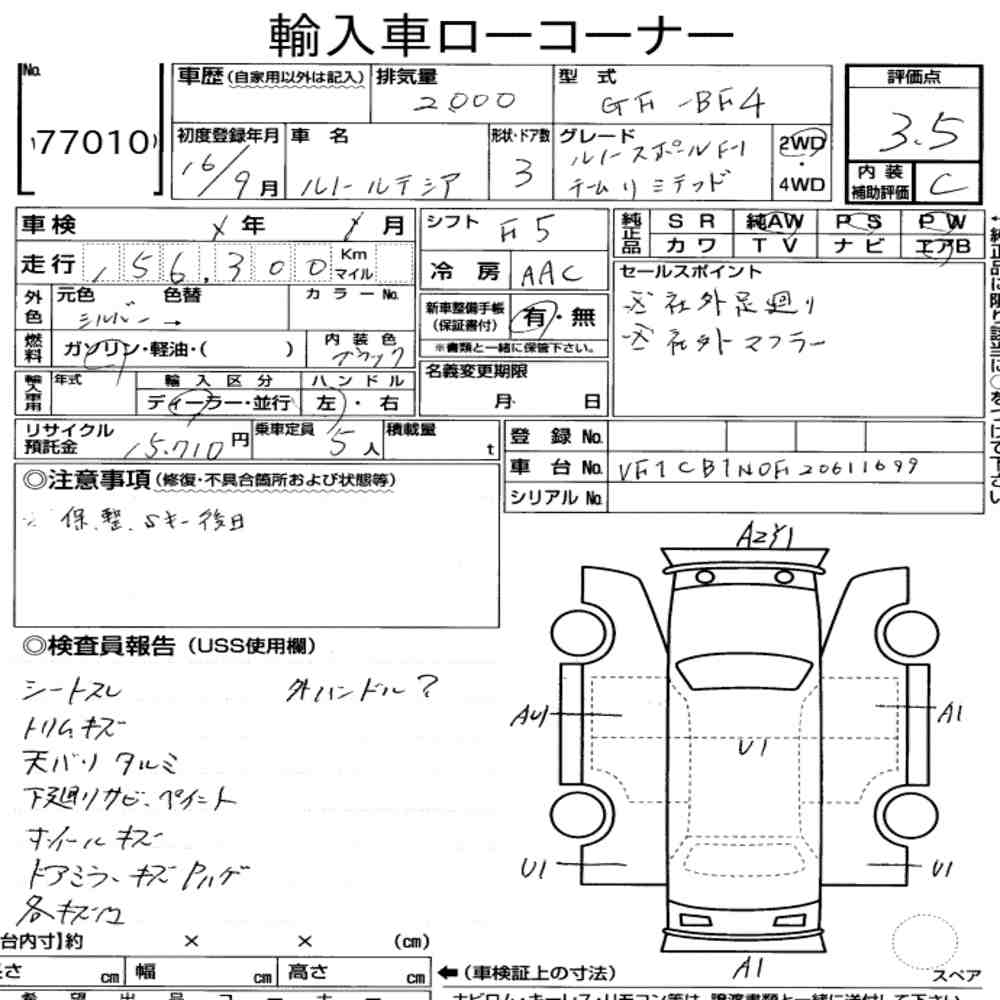 輸入車ローコーナー
No.
77010
車歴(自家用以外は記入)
排気量
2000
型 式
GF-BF4
評価点
3.5
初度登録年月
16/9月
車 名
ルノールテシア
形状・ドア数
3
グレード
ルノースポールF-1
チームリミテッド
2WD
・
4WD
内装
補助評価
C
車検
年
月
シフト
F5
純正品
SR
純AW
PS
PW
カワ
TV
ナビ
エアB
走行
156,300
Km
マイル
冷房
AAC
セールスポイント
※社外足廻り
※社外マフラー
外色
元色
色替
カラーNo.
シルバー→
新車整備手帳
(保証書付)
有・無
※書類と一緒に保管下さい。
燃料
ガソリン・軽油・( )
内装色
ブラック
輸入車用
年式
輸入区分
ハンドル
ディーラー・並行
左・右
名義変更期限
月 日
リサイクル
預託金
15.710円
乗車定員
5人
積載量
t
登録No.
車台No.
VF1CB1N0F20611699
シリアルNo.
◎注意事項(修復・不具合箇所および状態等)
※保.整.Sキー後日
◎検査員報告(USS使用欄)
シートスレ
外ハンドル?
トリムキズ
天バリタルミ
下廻りサビ、ペイント
ホイールキズ
ドアミラーキズPハゲ
各キズ凹
A2Y1
AU1
A1
U1
U1
U1
A1
スペア
台内寸】約 × × (cm)
さ cm
幅 cm
高さ cm
←(車検証上の寸法)